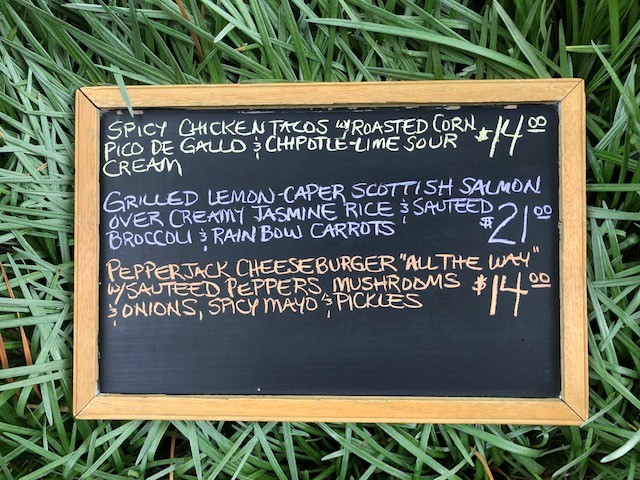 SPICY CHICKEN TACOS W/ ROASTED CORN $14.00
PICO DE GALLO & CHIPOTLE-LIME SOUR
CREAM
GRILLED LEMON-CAPER SCOTTISH SALMON
OVER CREAMY JASMINE RICE & SAUTEED $21.00
BROCCOLI & RAINBOW CARROTS
PEPPERJACK CHEESEBURGER "ALL THE WAY"
W/SAUTEED PEPPERS, MUSHROOMS $14.00
& ONIONS, SPICY MAYO & PICKLES